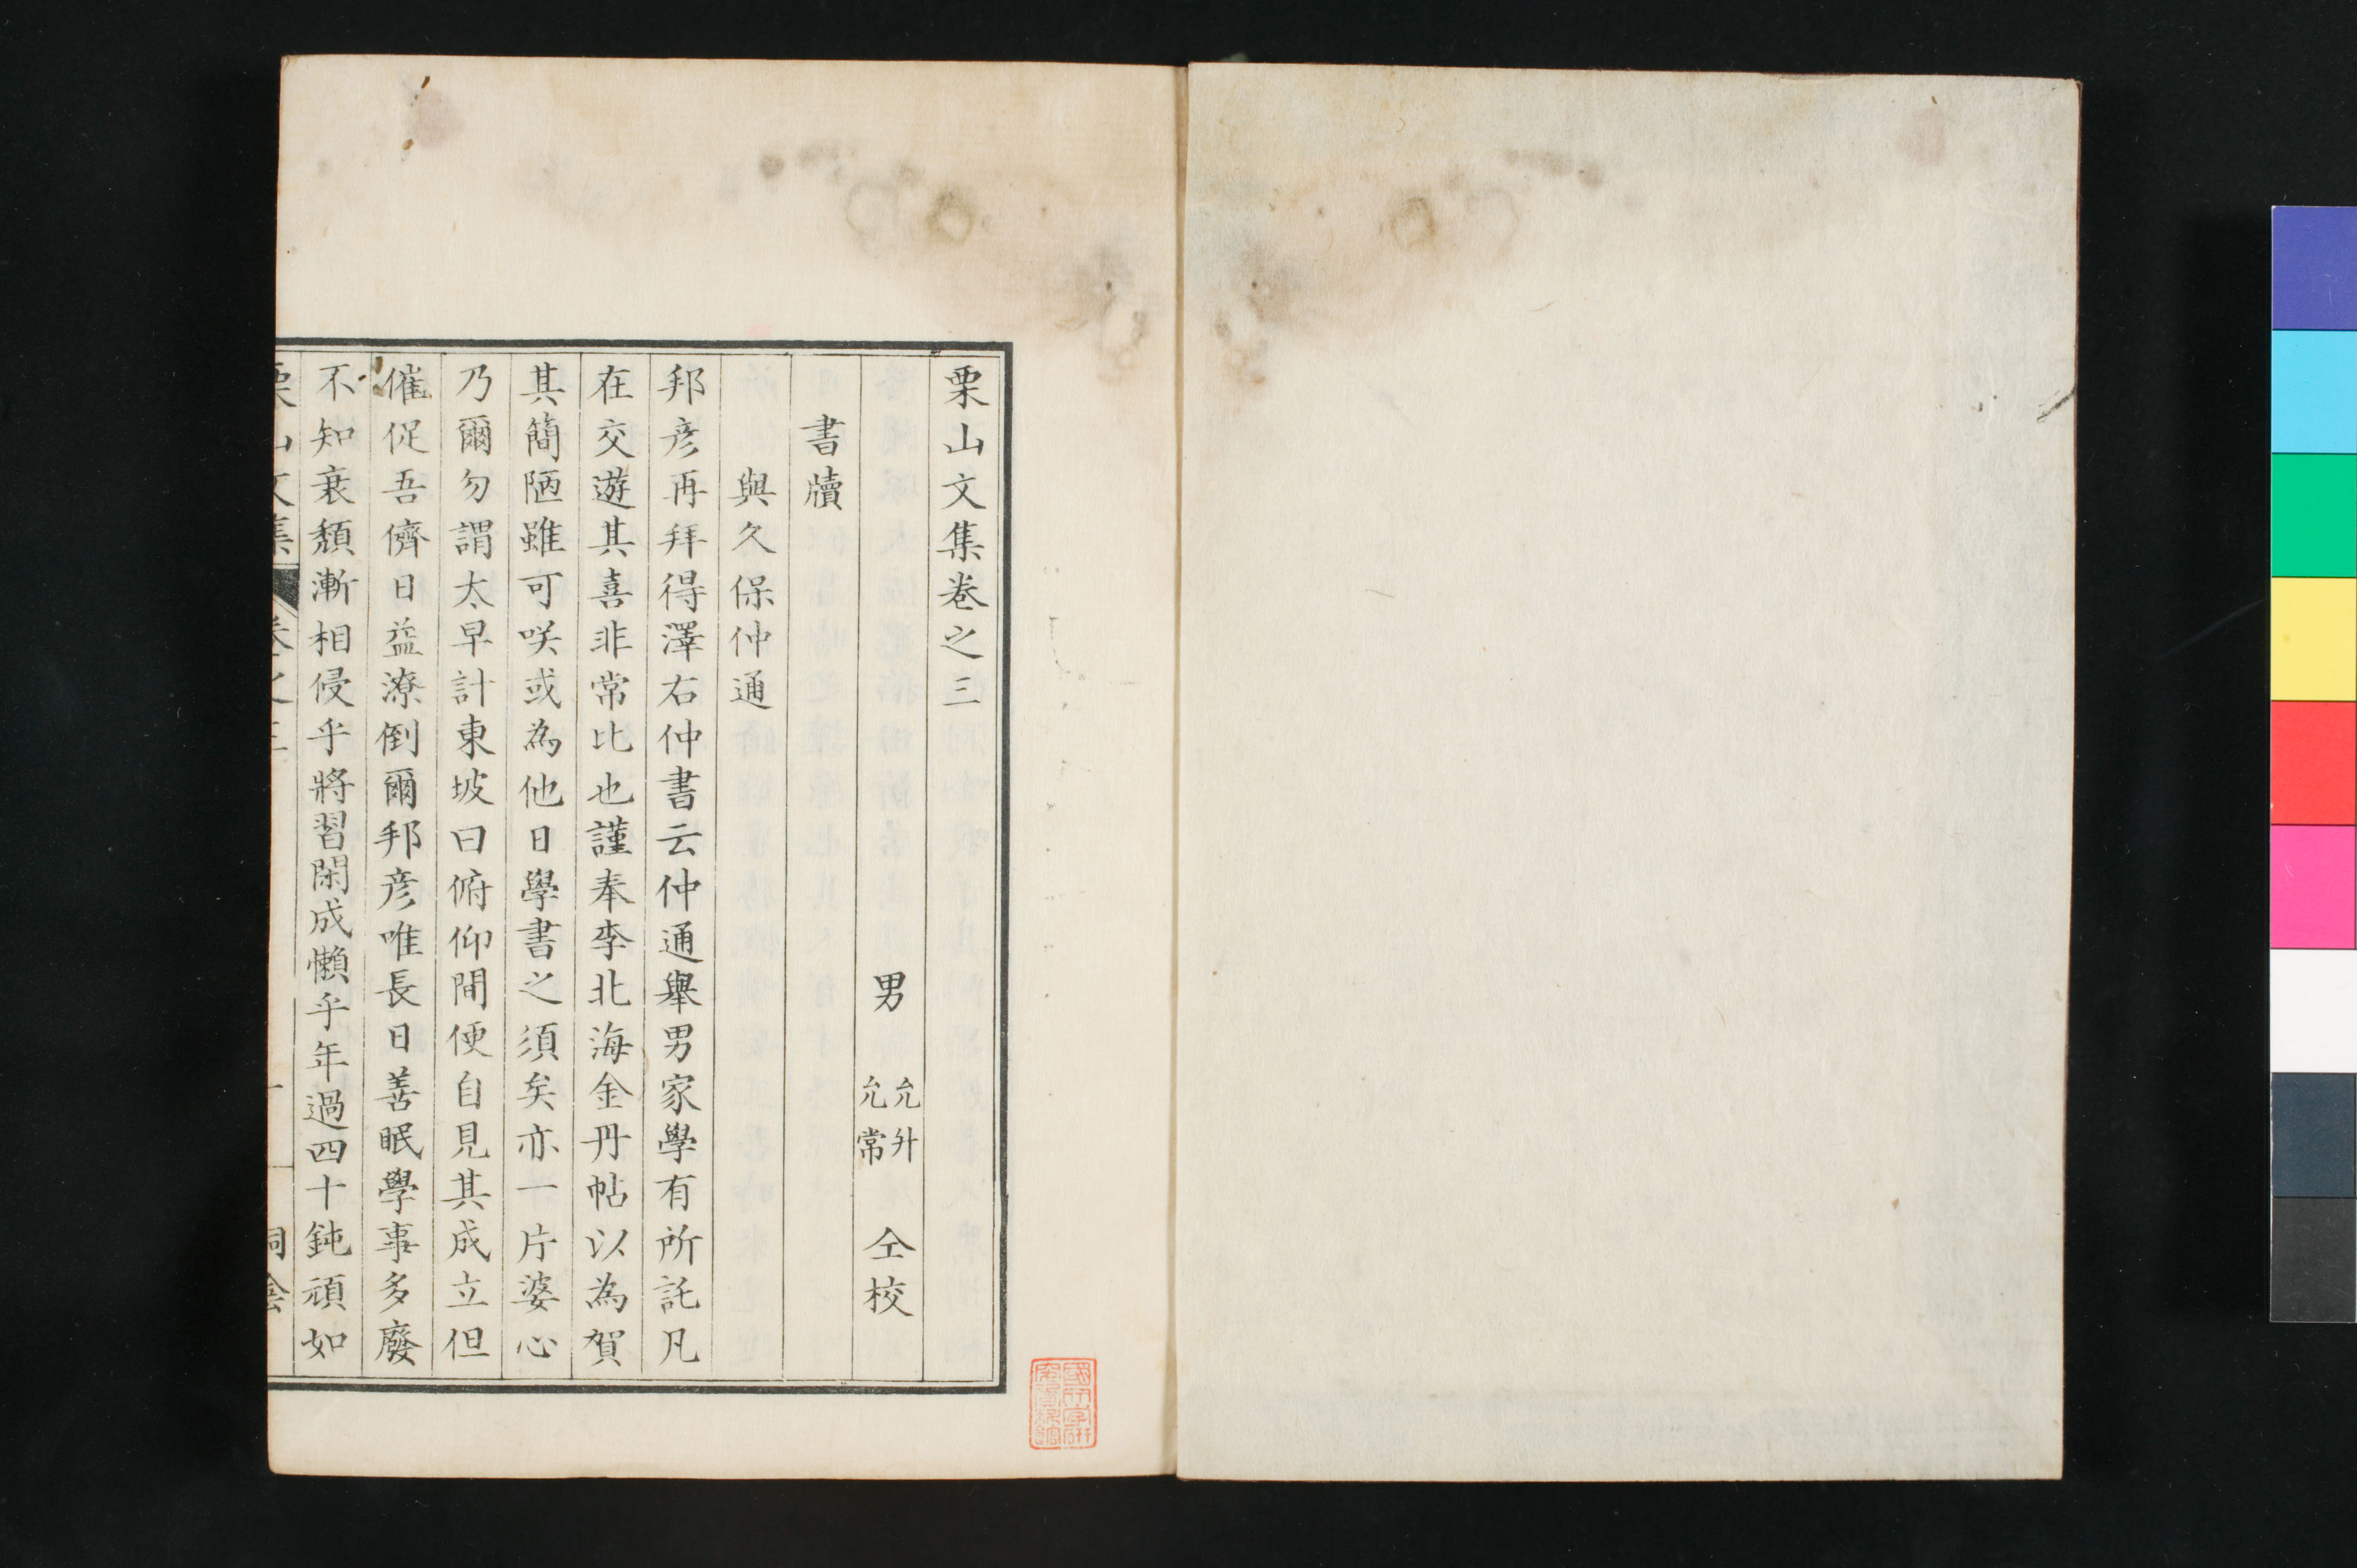 栗山文集卷之三
男 允升 允常 仝校
書牘
與久保仲通
邦彥再拜得澤右仲書云仲通舉男家學有所託凡
在交遊其喜非常比也謹奉李北海金丹帖以為賀
其簡陋雖可咲或為他日學書之須矣亦一片婆心
乃爾勿謂太早計東坡曰俯仰間便自見其成立但
催促吾儕日益潦倒爾邦彥唯長日善眠學事多廢
不知衰頹漸相侵乎將習閑成懶乎年過四十鈍頑如
栗山文集 卷之三